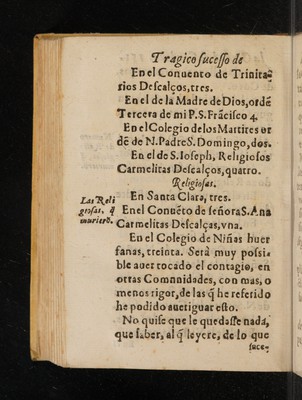 Tragico sucesso de
En el Conuento de Trinita-
rios Descalços, tres.
En el de la Madre de Dios, ordē
Tercera de mi P. S. Frácisco 4.
En el Colegio de los Martires or
dē de N. Padre S. Domingo, dos.
En el de S. Ioseph, Religiosos
Carmelitas Descalços, quatro.
Religiosas.
En Santa Clara, tres.
Las Reli
giosas. q̃
muriérō.
En el Conuēto de señora S. Ana
Carmelitas Descalças, vna.
En el Colegio de Niñas huer
fanas, treinta. Serà muy possi-
ble auer tocado el contagio, en
otras Comunidades, con mas, o
menos rigor, de las q̃ he referido
he podido aueriguar esto.
No quise que le quedasse nada,
que saber, al q̃ leyere, de lo que
suce-